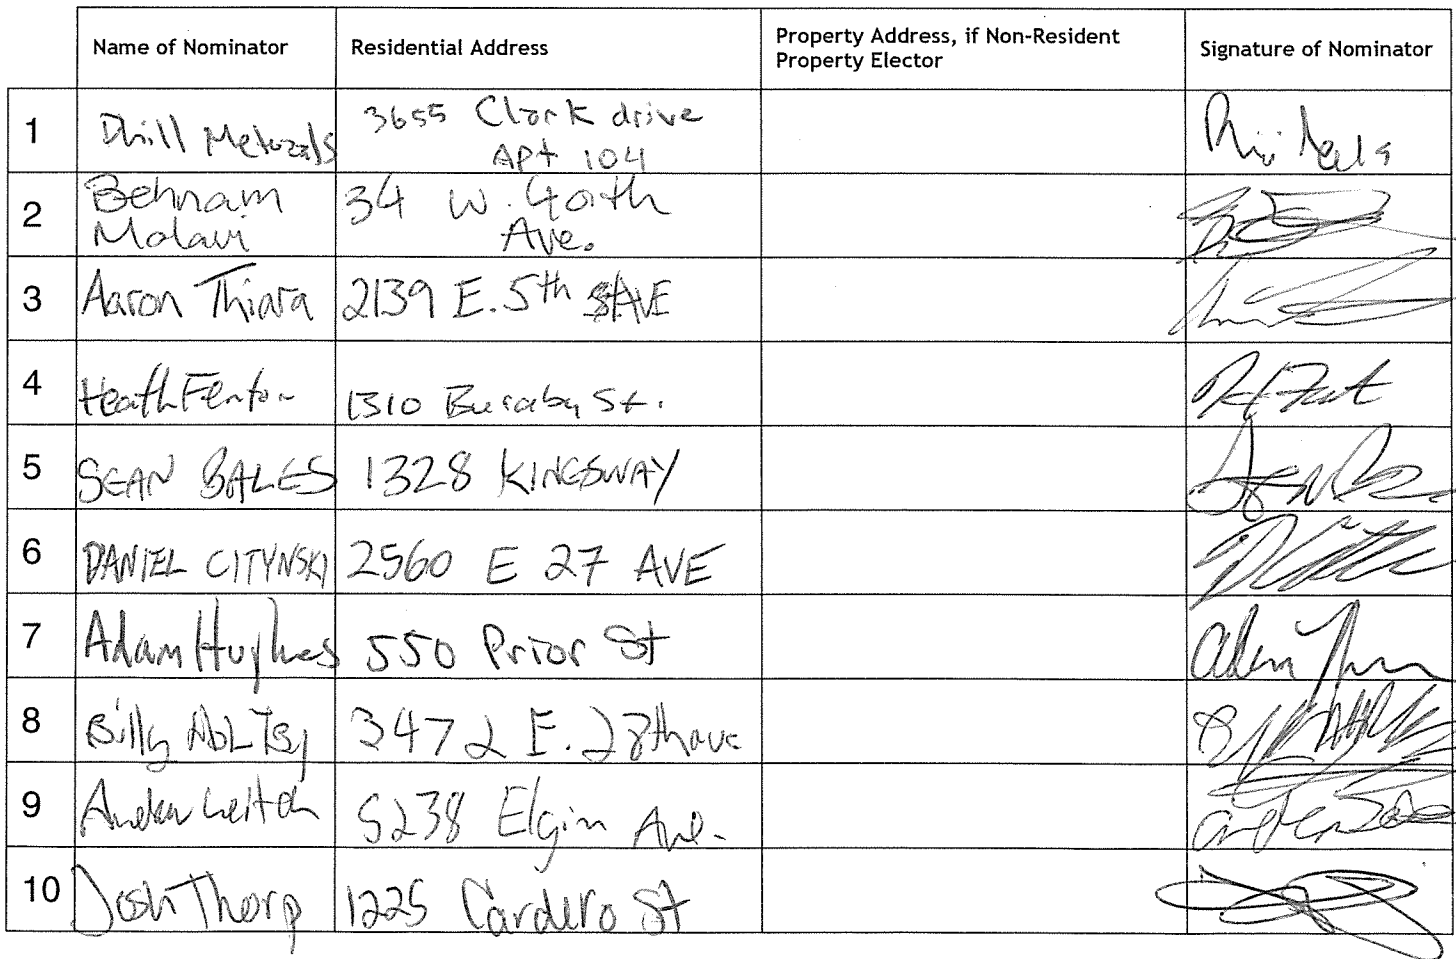 Name of Nominator
Residential Address
Property Address, if Non-Resident
Property Elector
Signature of Nominator
1
3655 Clark drive
Apt 104
2
Behnam
Molavi
34 W. 40th
Ave.
3 Aaron Thiara 2139 E. 5th AVE
4 Heath Fenton 1310 Buraby St.
5 SEAN BALES 1328 KINGSWAY
6 DANIEL CITYNSKI 2560 E 27 AVE
7 Adam Hughes 550 Prior St
8 Billy 3472 E. 28th ave
9 Andrew Leitch 5238 Elgin Ave.
10 Josh Thorp 1225 Cardero St